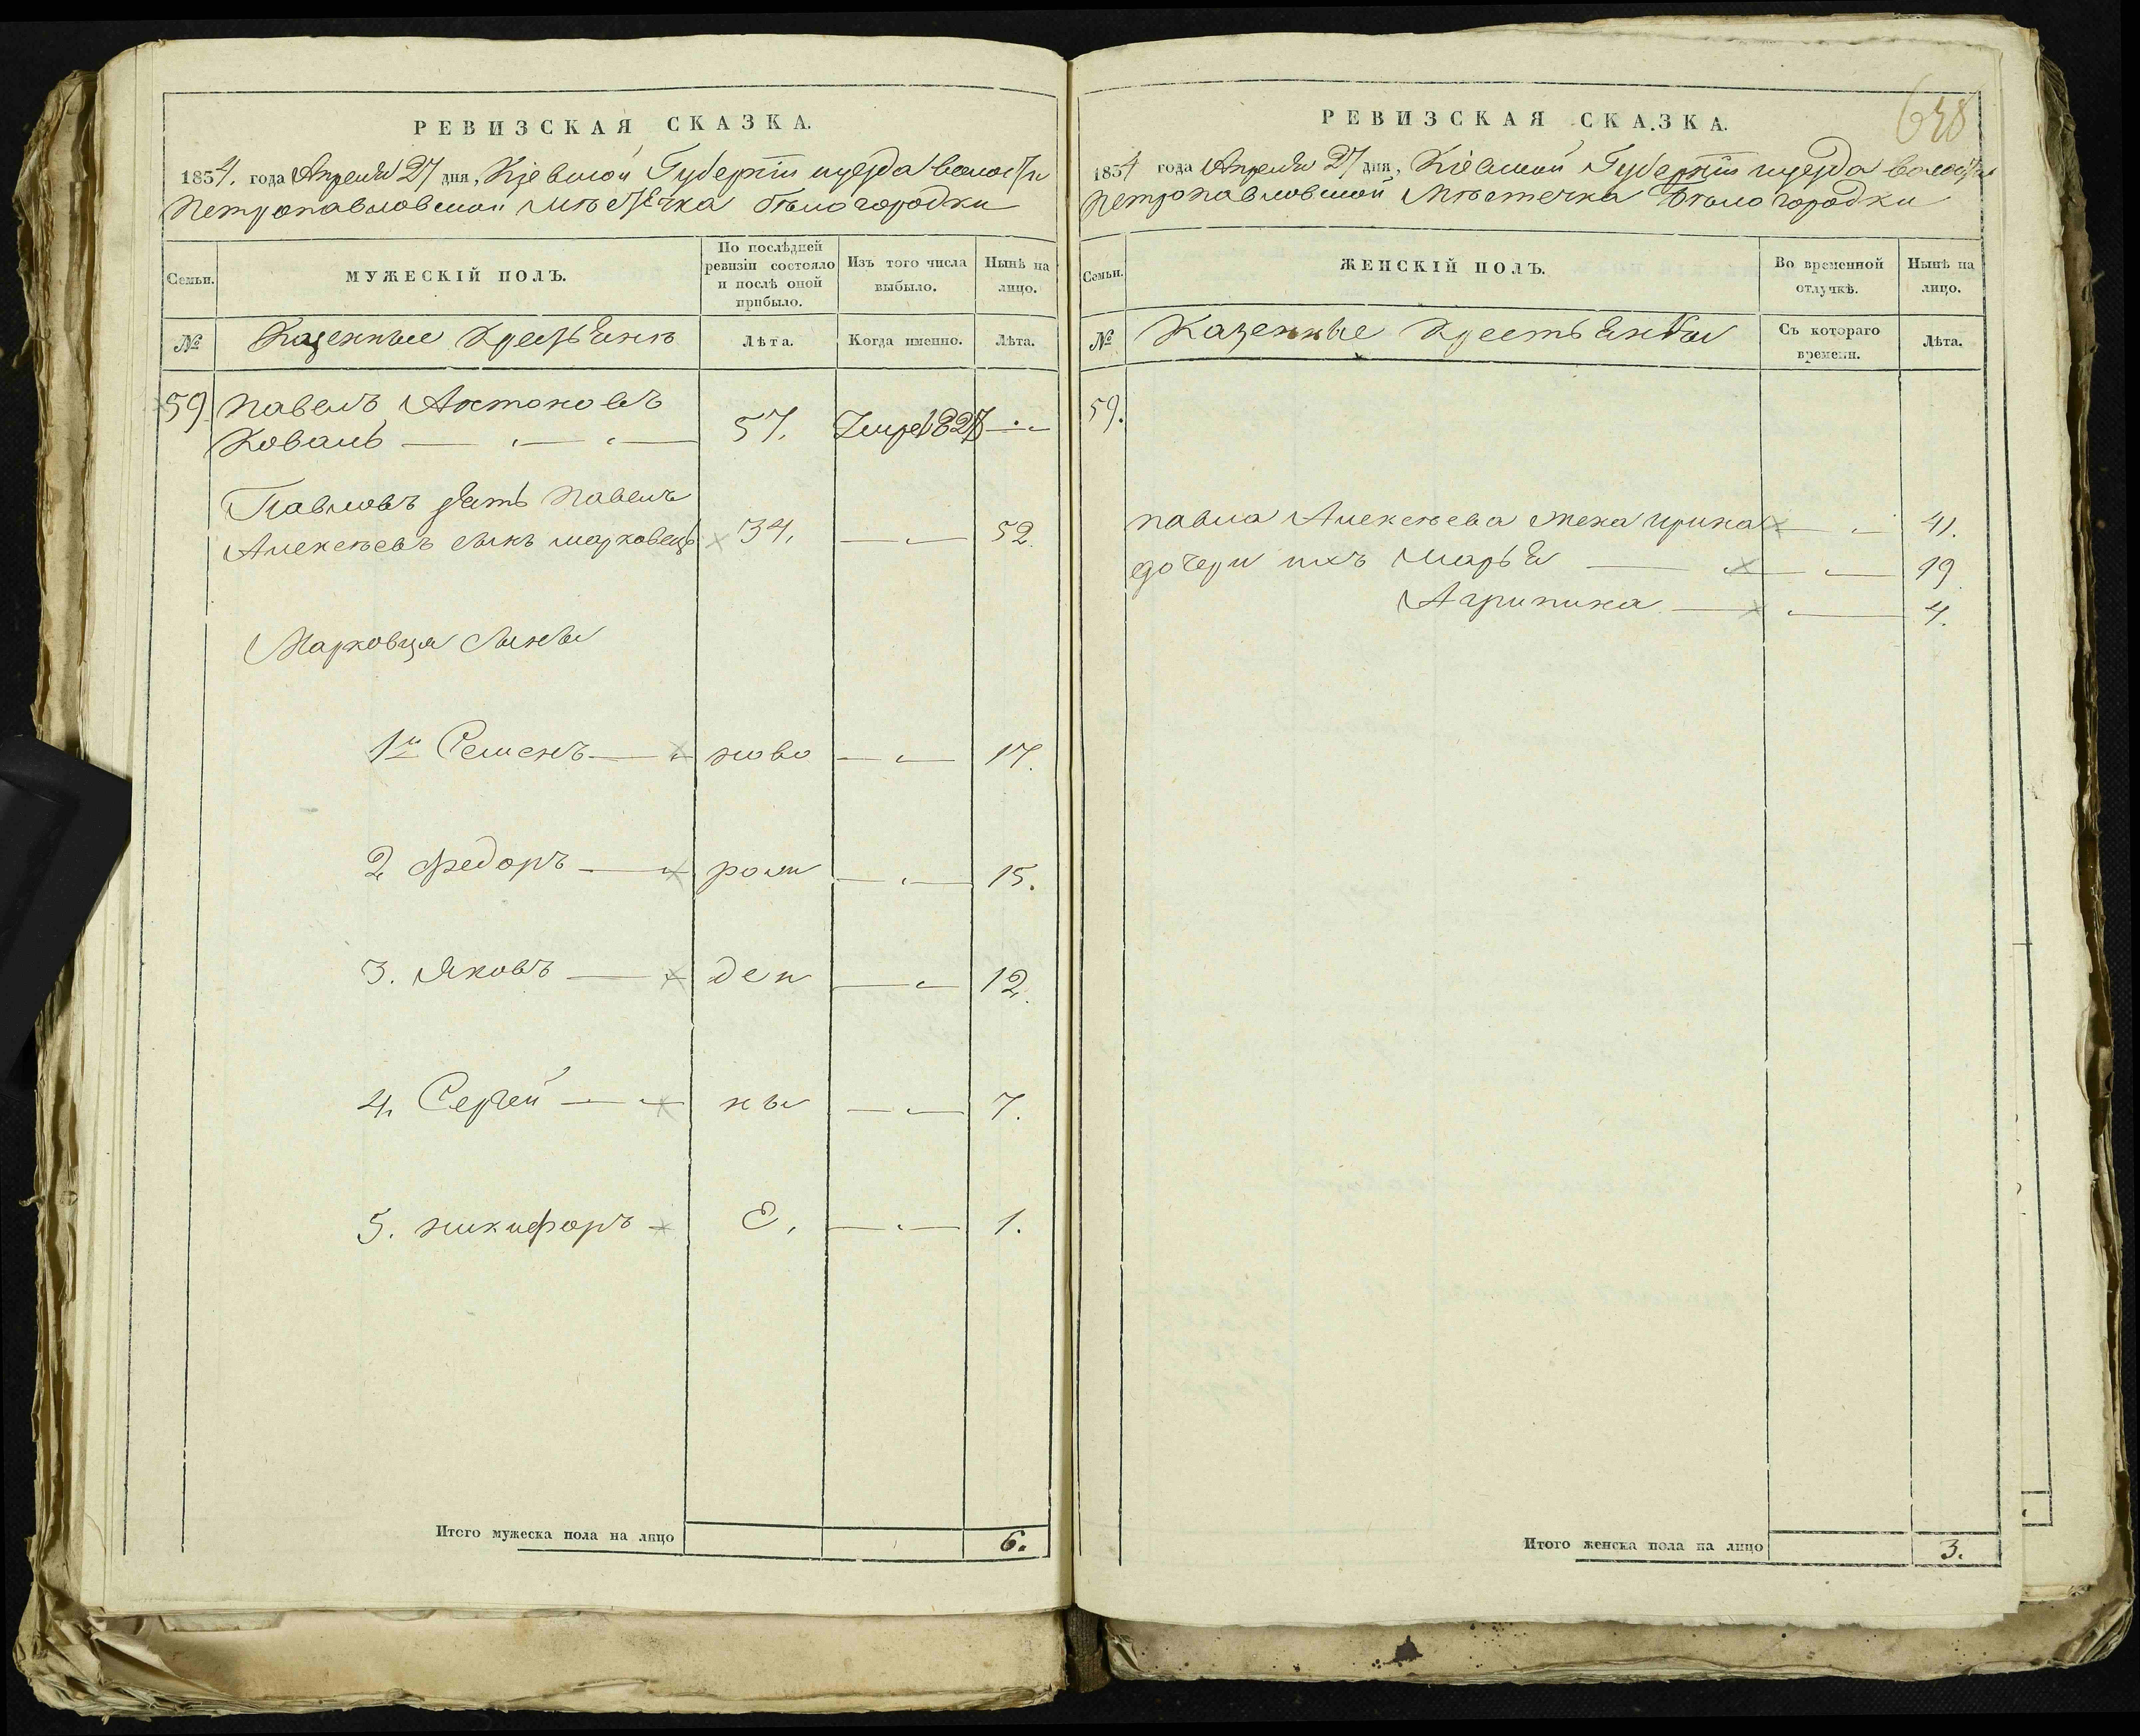 РЕВИЗСКАЯ СКАЗКА.
1854. года Апреля 27 дня, Кіевской Губерніи и уезда волости
Петропавловской местечка Белогородки
Семьи.
МУЖЕСКІЙ ПОЛЪ.
По послѣдней ревизіи состояло и послѣ оной прибыло.
Изъ того числа выбыло.
Нынѣ на лицо.
№
Казенные Крестьяне
Лѣта.
Когда именно.
Лѣта.
59 Павелъ Антоновъ
Коваль 57. Умре 1827
Павловъ зять Павелъ
Алексѣевъ сынъ Марковецъ 34. 52.
Марковца сыны
1й Семенъ ново 17.
2 Федоръ рож 15.
3. Яковъ ден 12.
4. Сергей ны 7.
5. Никифоръ е. 1.
Итого мужеска пола на лицо 6.
628
РЕВИЗСКАЯ СКАЗКА.
1854 года Апреля 27 дня, Кіевской Губерніи и уезда волости
Петропавловской Мѣстечка Бѣлогородки
Семьи.
ЖЕНСКІЙ ПОЛЪ.
Во временной отлучкѣ.
Нынѣ на лицо.
№
Казенные Крестьянки
Съ котораго времени.
Лѣта.
59.
Павла Алексѣева жена Ирина 41.
дочери ихъ Марья 19
Агрипина 4.
Итого женска пола на лицо 3.